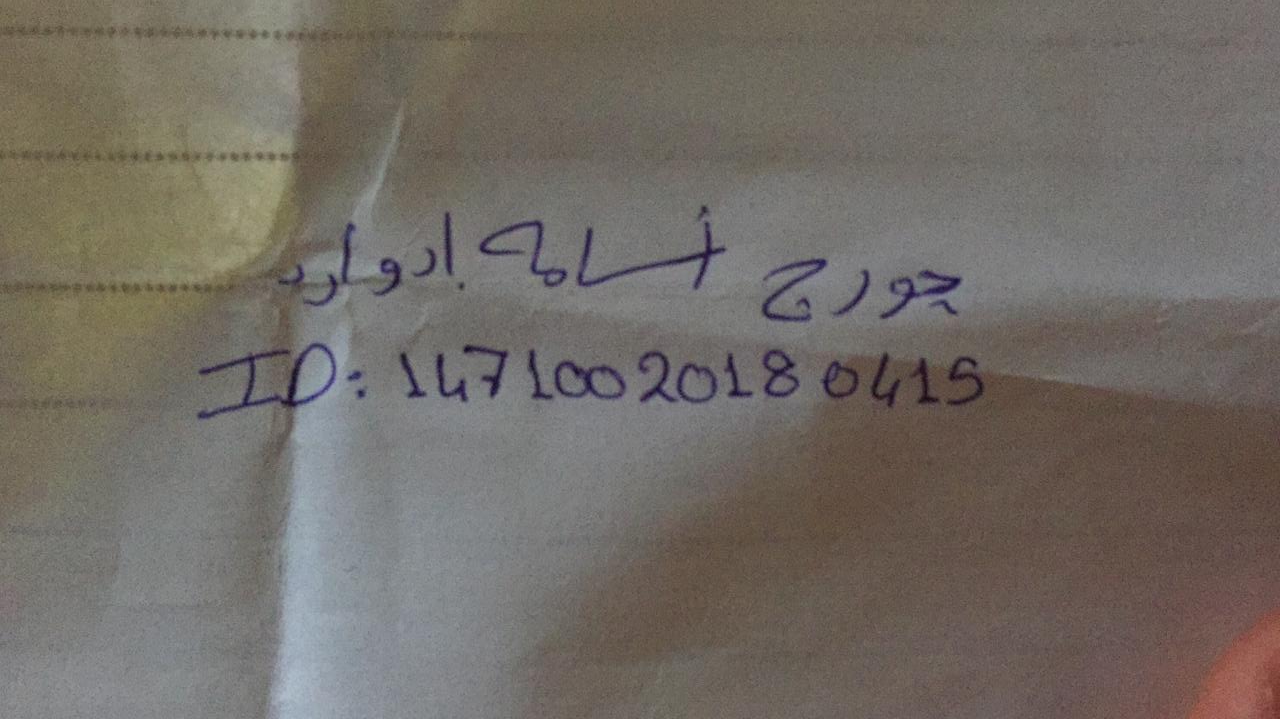 جورج أسامه إدوارد
ID: 14710020180415